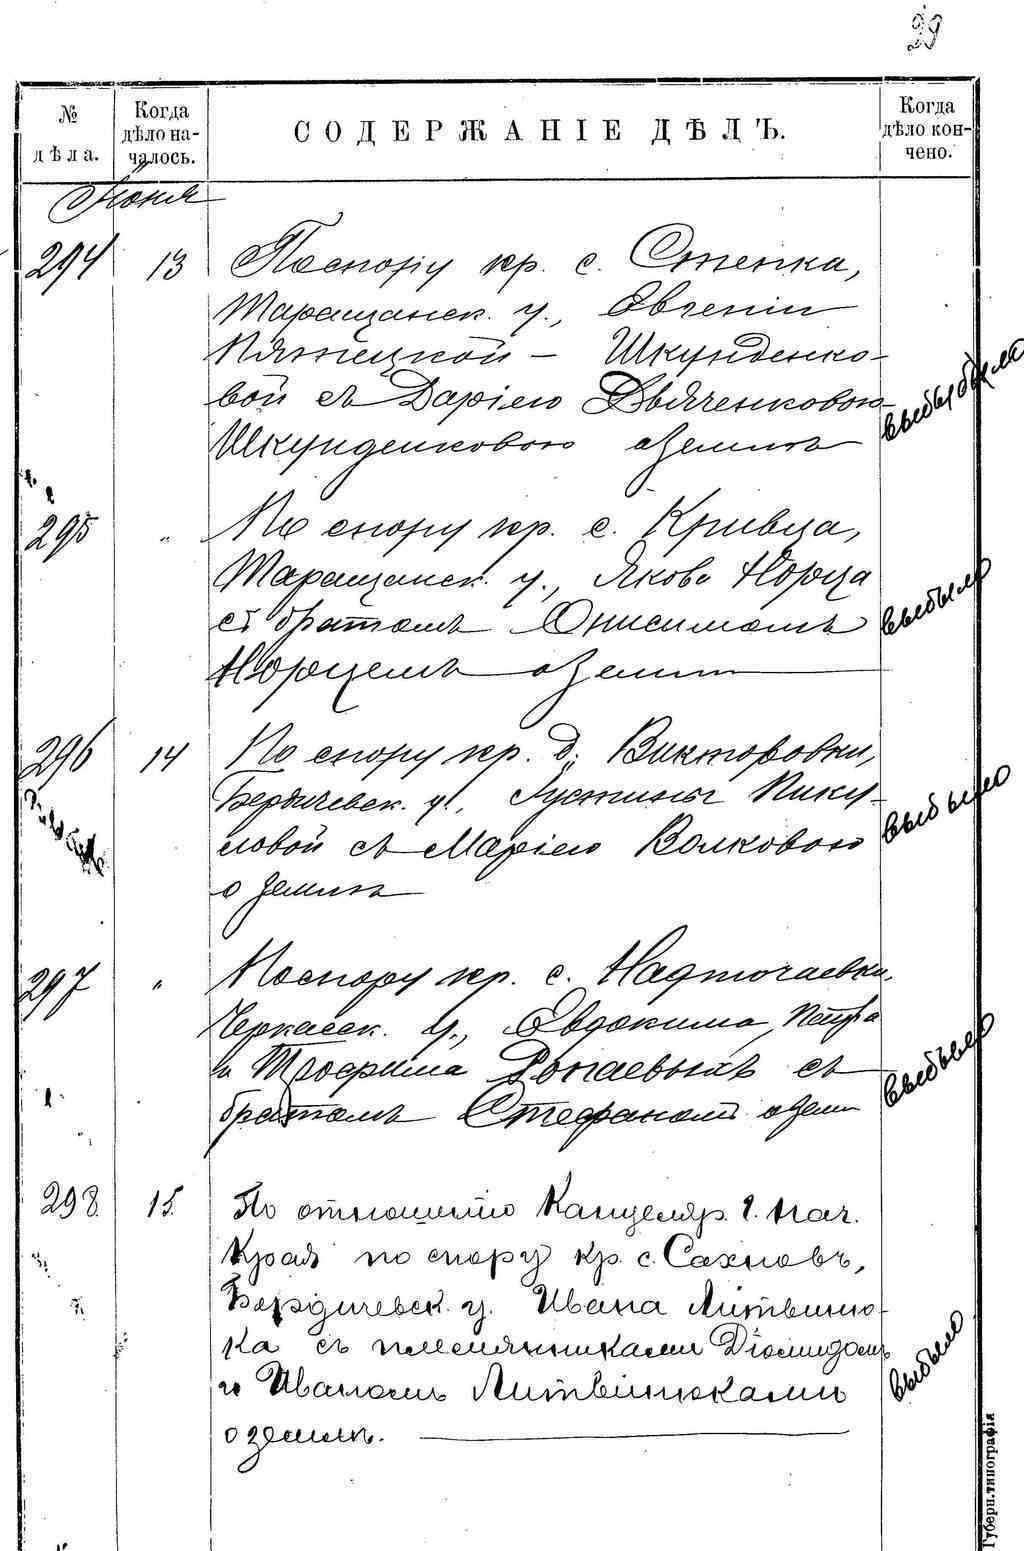 29
№ дѣла.
Когда дѣло началось.
СОДЕРЖАНІЕ ДѢЛЪ.
Когда дѣло кончено.
Іюня
294 13 По спору кр. с. Степка,
Таращанск. у., Евгеніи
Пятецкой - Шкунденко-
вой съ Даріею Дьяченковою-
Шкунденковою о землѣ
выбыло
295 " По спору кр. с. Кривца,
Таращанск. у., Якова Норца
съ братомъ Онисимомъ
Норцемъ о земл
выбыло
296 14 По спору кр. д. Викторовки,
Бердичевск. у., Іустины Пику-
ловой съ Маріею Волковою
о землѣ
выбыло
297 " По спору кр. с. Надточаевки,
Черкасск. у., Евдокима, Петра
и Трофима Рогаевыхъ съ
братомъ Стефаномъ о земл
выбыло
298. 15. По отношенію Канцеляр. г. Нач.
Края по спору кр. с. Сахновъ,
Бердичевск. у. Ивана Литвиню-
ка съ племянниками Діомидомъ
и Иваномъ Литвинюками
о землѣ.
выбыло
Губерн. типографія